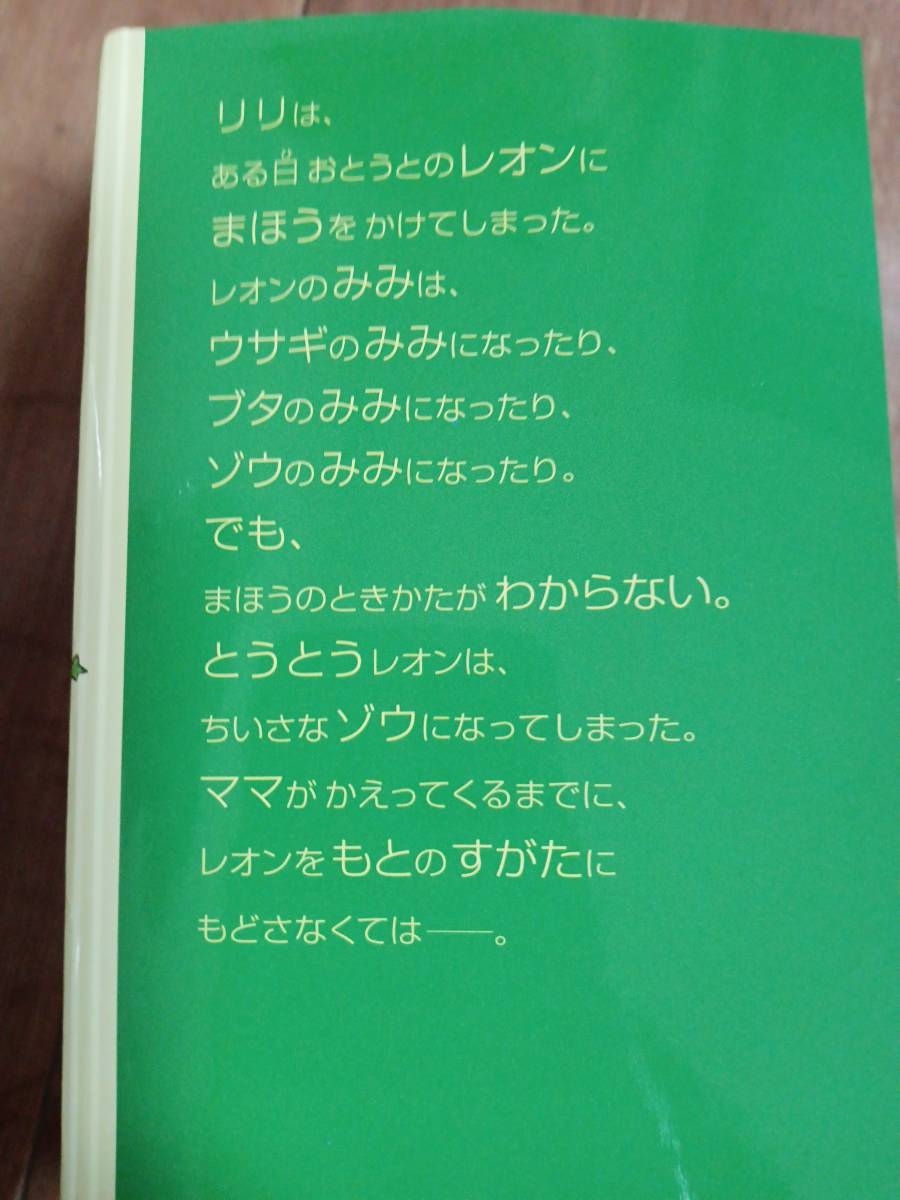 リリは、
ある日 おとうとのレオンに
まほうを かけてしまった。
レオンのみみは、
ウサギのみみになったり、
ブタのみみになったり、
ゾウのみみになったり。
でも、
まほうのときかたが わからない。
とうとうレオンは、
ちいさなゾウになってしまった。
ママが かえってくるまでに、
レオンを もとの すがたに
もどさなくては──。